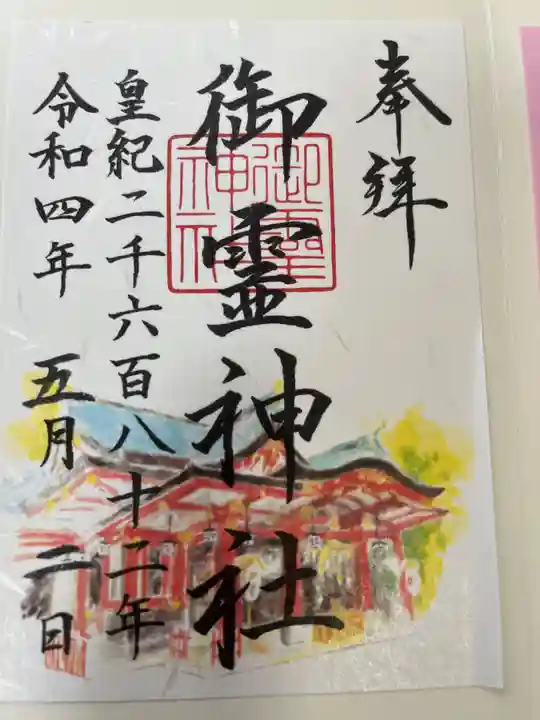 奉拝
御霊神社
御霊神社
皇紀二千六百八十二年
令和四年 五月 二日